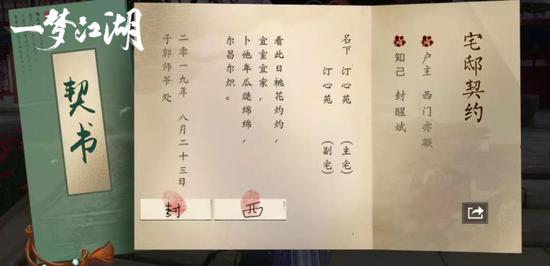 一梦江湖
契书
宅邸契约
户主 西门亦凝
知己 封醒斌
名下 汀心苑 (主宅)
汀心苑 (副宅)
看此日桃花灼灼,
宜室宜家,
卜他年瓜瓞绵绵,
尔昌尔炽。
二零一九年 八月二十三日
于郭师爷处
西
封